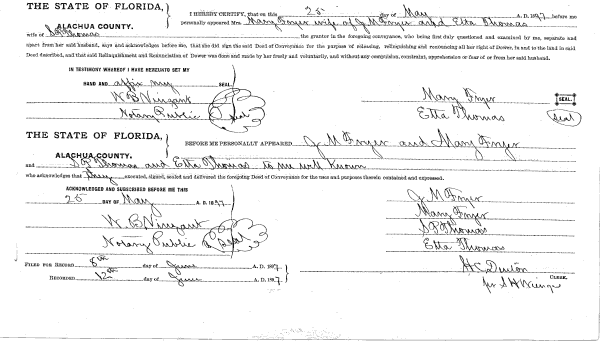 THE STATE OF FLORIDA,
ALACHUA COUNTY.
I HEREBY CERTIFY, that on this 25 day of May A. D. 1897, before me
personally appeared Mrs Mary Fryer wife of J M Fryer and Etta Thomas
wife of S P Thomas the grantor in the foregoing conveyance, who being first duly questioned and examined by me, separate and
apart from her said husband, says and acknowledges before me, that she did sign the said Deed of Conveyance for the purpose of releasing, relinquishing and renouncing all her right of Dower, in and to the land in said
Deed described, and that said Relinquishment and Renunciation of Dower was done and made by her freely and voluntarily, and without any compulsion, constraint, apprehension or fear of or from her said husband.
IN TESTIMONY WHEREOF I HAVE HEREUNTO SET MY
HAND AND affix my SEAL.
W. B Vinzant
Notary Public
Seal
Mary Fryer SEAL.
Etta Thomas Seal
THE STATE OF FLORIDA,
ALACHUA COUNTY.
BEFORE ME PERSONALLY APPEARED J M Fryer and Mary Fryer
and S P Thomas and Etta Thomas to me well known
who acknowledges that they executed, signed, sealed and delivered the foregoing Deed of Conveyance for the uses and purposes therein contained and expressed.
ACKNOWLEDGED AND SUBSCRIBED BEFORE ME THIS
25 DAY OF May A. D. 1897.
W. B Vinzant
Notary Public
Seal
J M Fryer
Mary Fryer
S P Thomas
Etta Thomas
FILED FOR RECORD 8th day of June A. D. 1897
RECORDED 12th day of June A. D. 1897.
H C Denton CLERK.
per S H Wienges